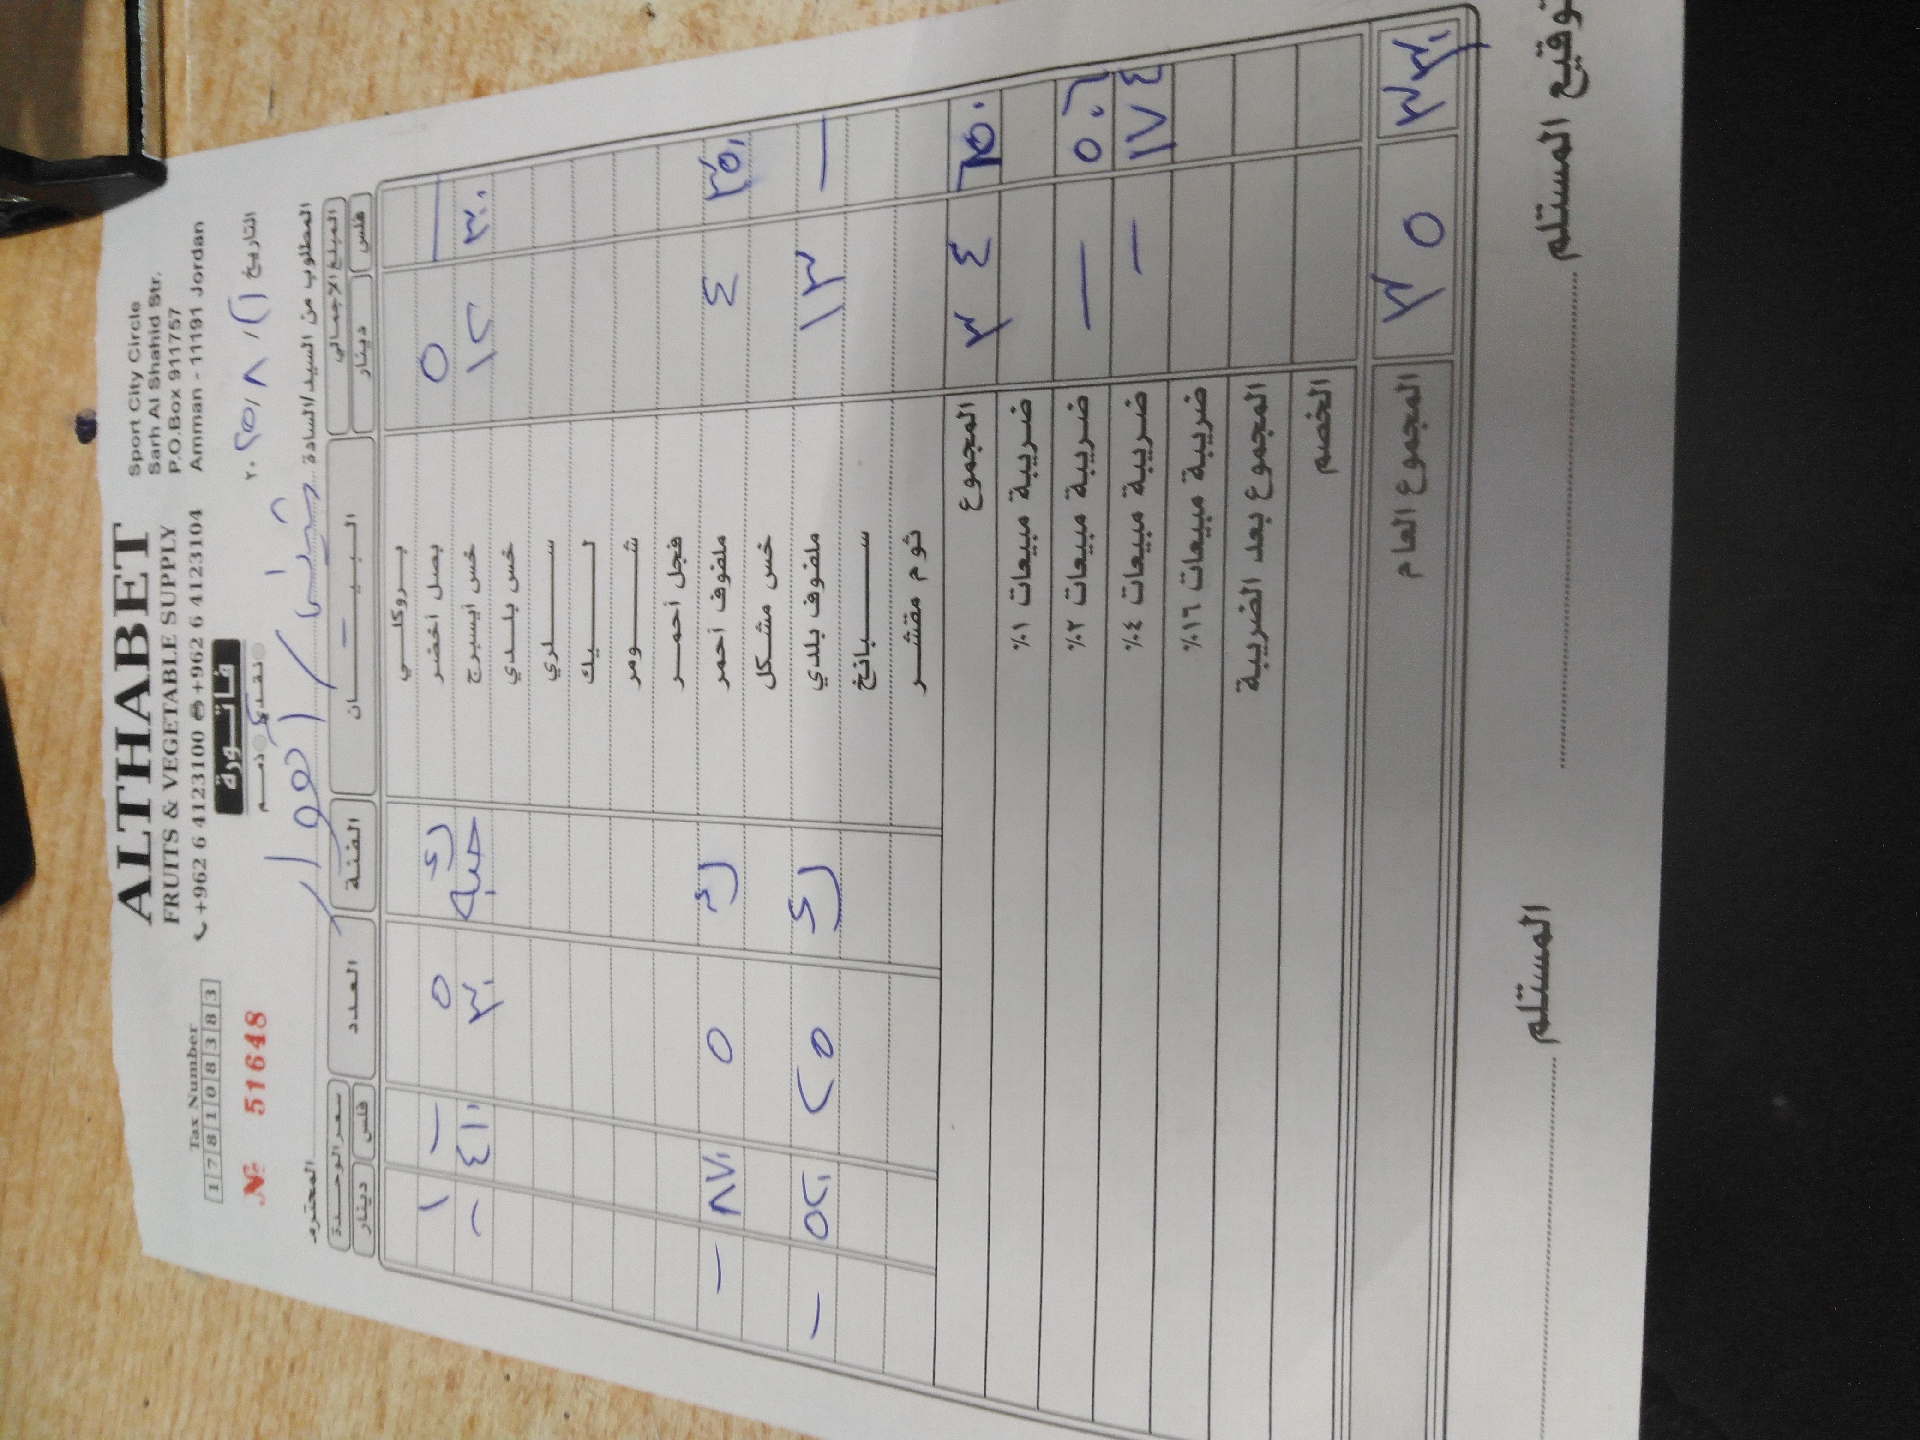 ALTHABET
FRUITS & VEGETABLE SUPPLY
+962 6 4123100 +962 6 4123104
Sport City Circle
Sarh Al Shahid Str.
P.O.Box 911757
Amman - 11191 Jordan
Tax Number
178108383
№ 51648
فاتورة
نقدي ذمم
التاريخ ٢٠٢٥/٨/
المطلوب من السيد/السادة المحترم
المبلغ الإجمالي البيـــان الفئة العدد سعر الوحدة
فلس دينار فلس دينار
بروكلي
— ٥ بصل أخضر ك ٥ — ١
٣٠٠ ١٢ خس ايسبرج حبه ٣٠ ٤١٠ -
خس بلدي
سلري
ليك
شومر
فجل أحمر
٣٥٠ ٤ ملفوف أحمر ك ٥ ٨٧٠ -
خس مشكل
— ١٣ ملفوف بلدي ك ٢٥ ٥٢٠ -
سبانخ
ثوم مقشر
٦٥٠ ٣٤ المجموع
ضريبة مبيعات ١٪
٥٠٦ — ضريبة مبيعات ٢٪
١٧٤ - ضريبة مبيعات ٤٪
ضريبة مبيعات ١٦٪
المجموع بعد الضريبة
الخصم
٣٣٠ ٣٥ المجموع العام
المستلم توقيع المستلم